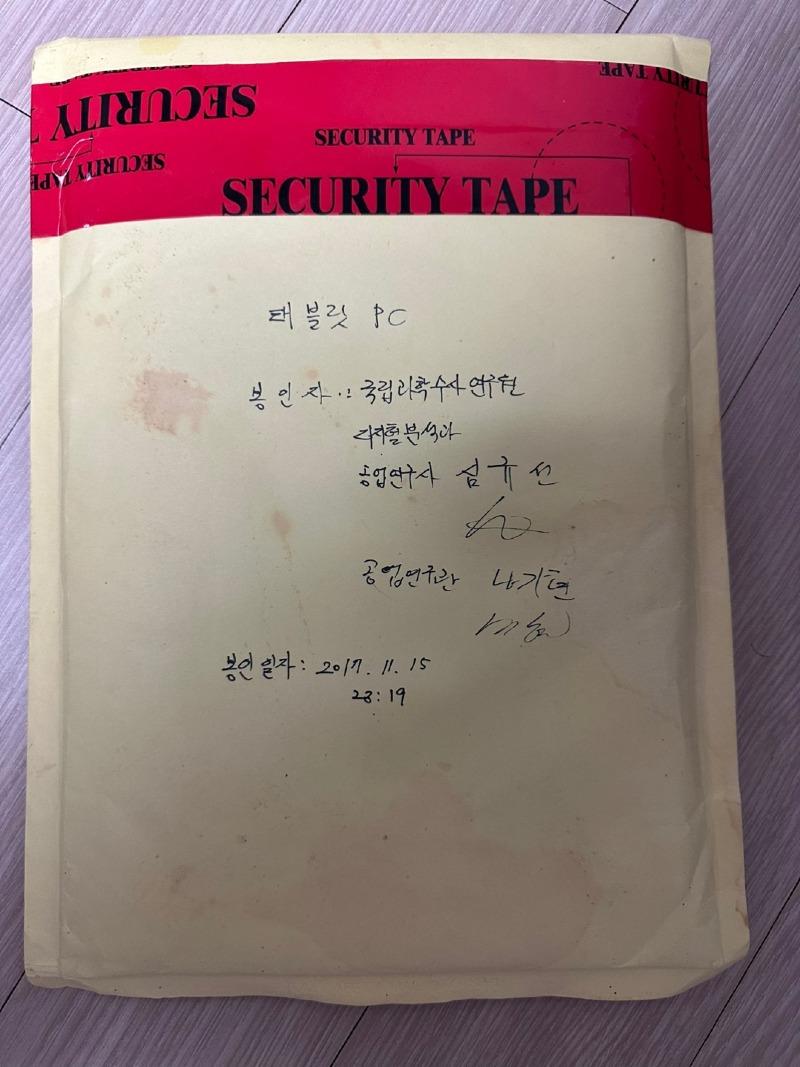 SECURITY TAPE
SECURITY T
SECURITY TAPE
SECURITY TAPE
SECURITY TAPE
태블릿 PC
봉인자 : 국립과학수사연구원
디지털분석과
공업연구사 심규선
공업연구관 나기현
봉인일자 : 2017. 11. 15
23:19